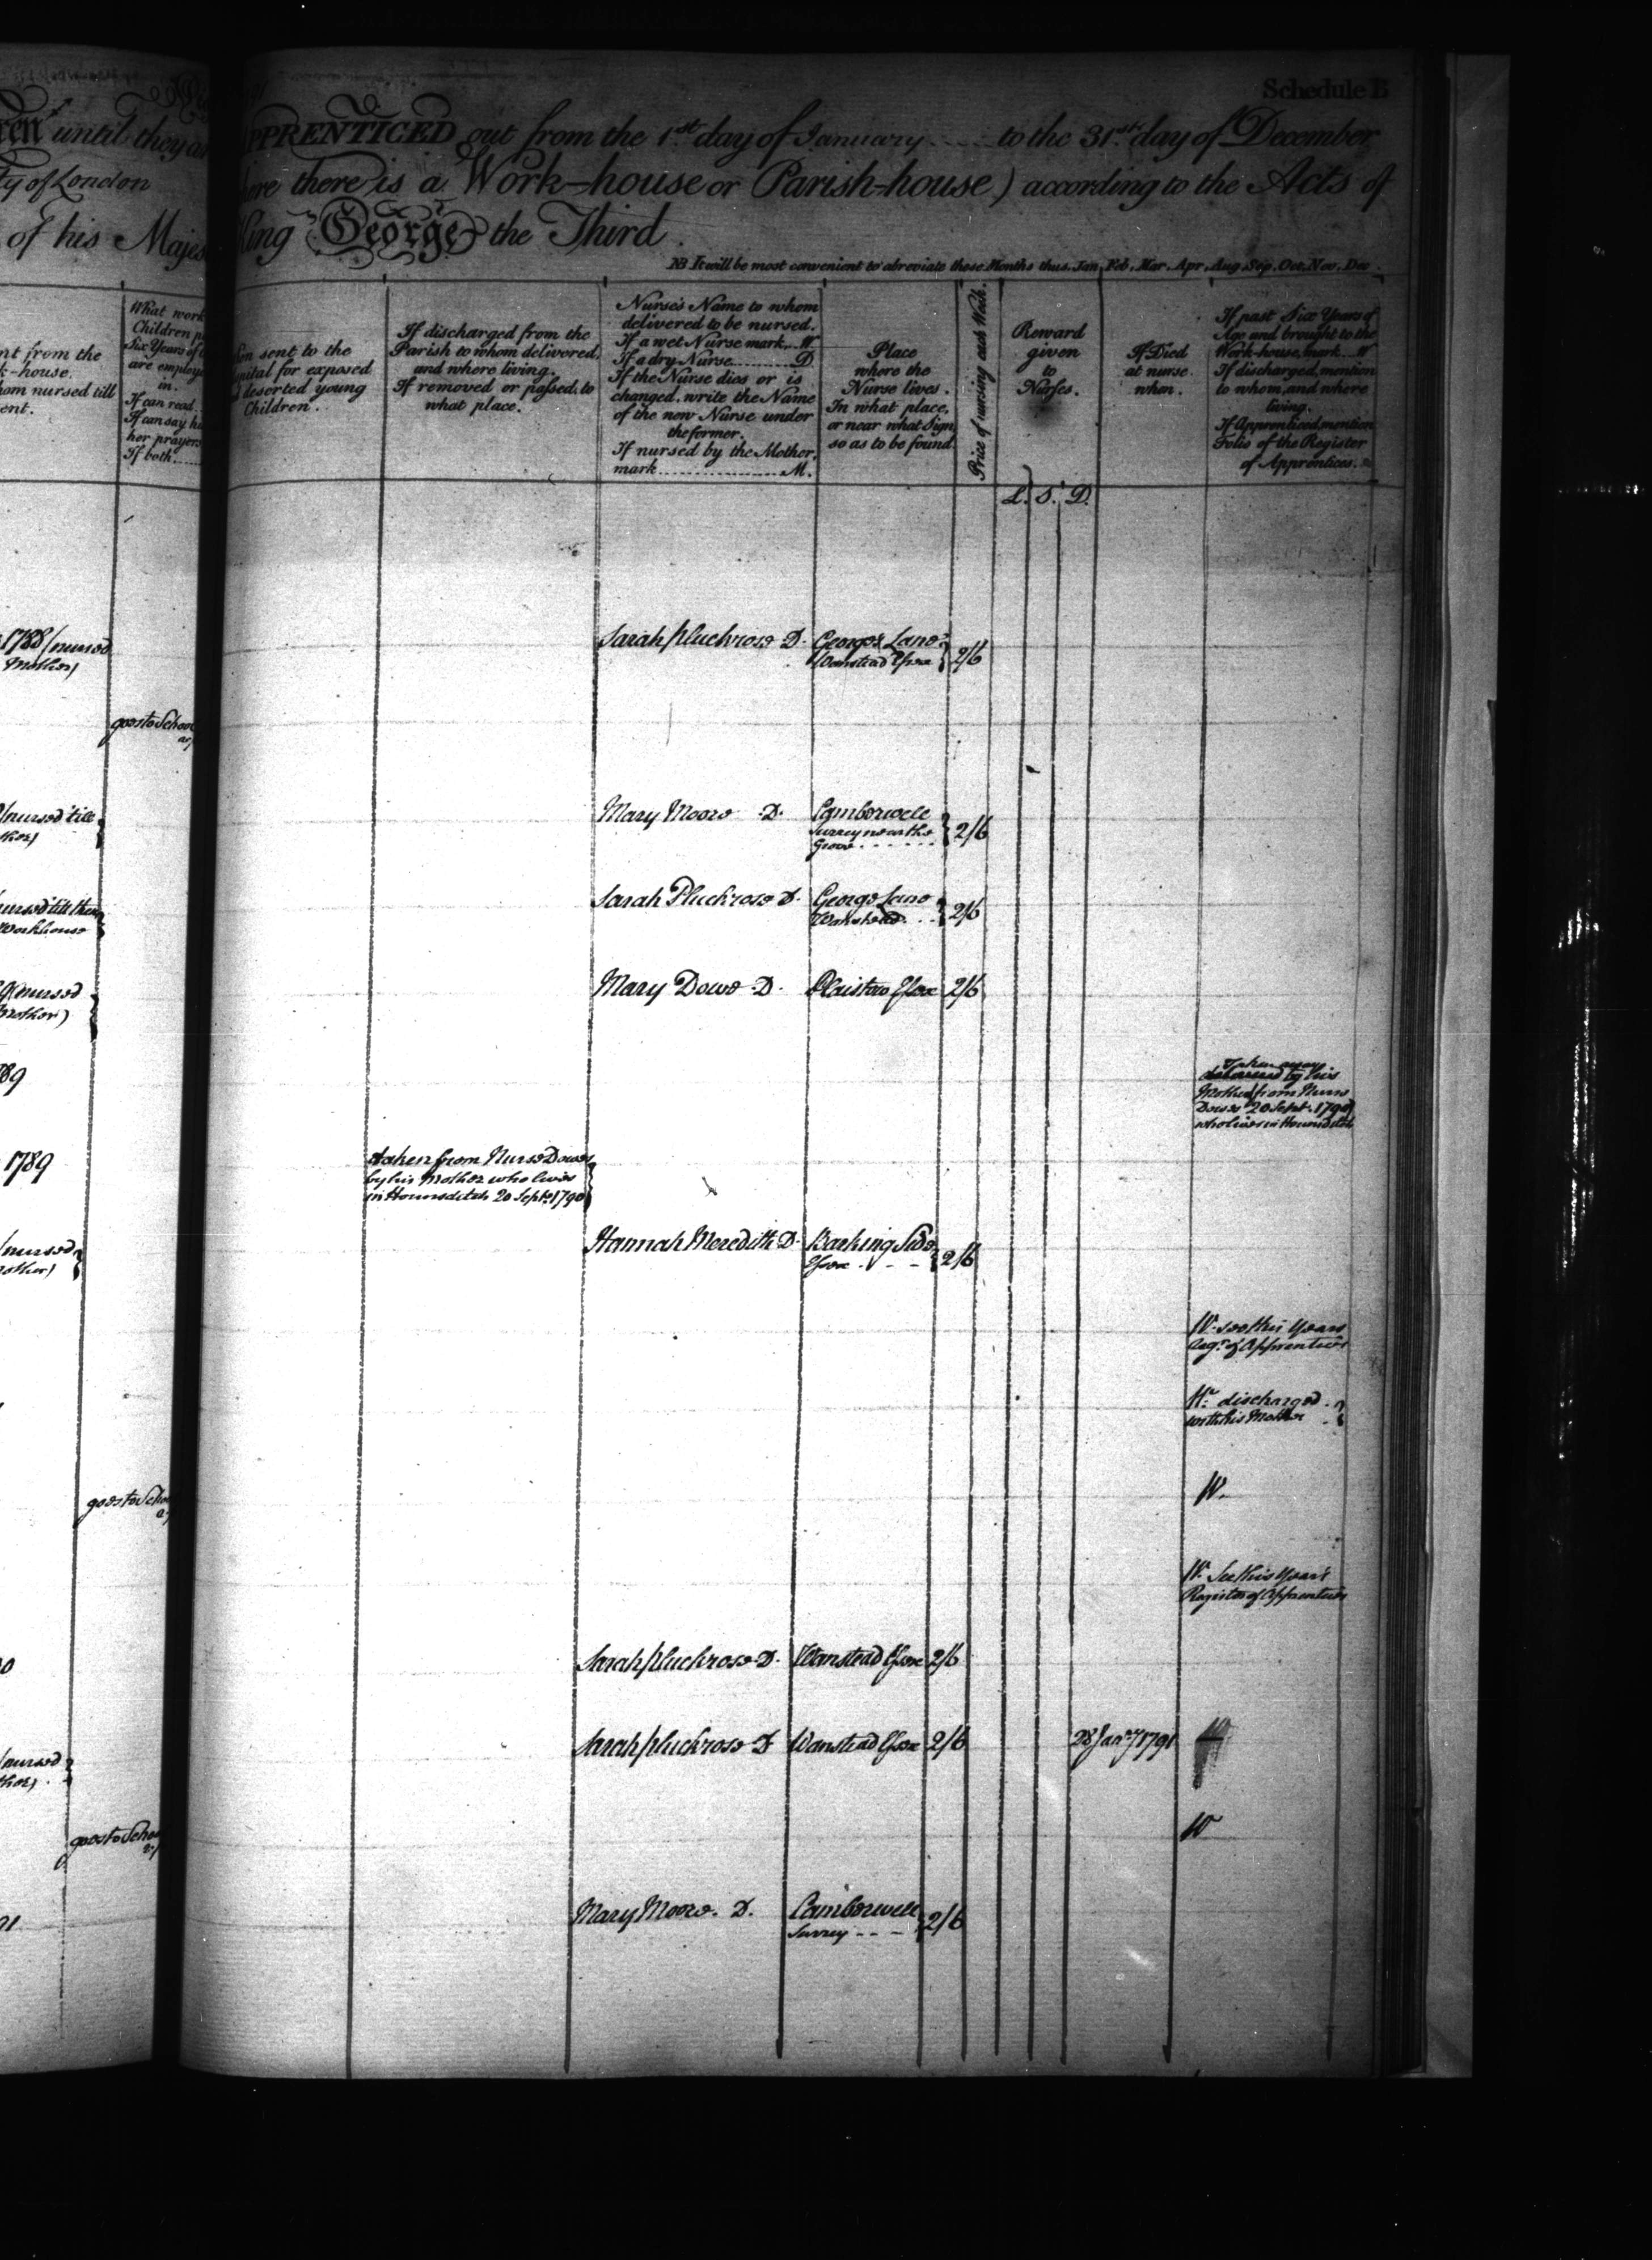 Schedule B
ren until they a
APPRENTICED out from the 1st day of January to the 31st day of December
ty of London
ere there is a Work-house or Parish-house) according to the Acts of
of his Majes
King George the Third.
NB It will be most convenient to abreviate those Months thus. Jan. Feb. Mar. Apr. Aug. Sep. Oct. Nov. Dec.
nt from the
k-house.
hom nursed till
ent.
What work
Children p
Six Years of
are employ
in.
If can read.
If can say h
her prayers
If both
sent to the
pital for exposed
deserted young
Children.
If discharged from the
Parish to whom delivered,
and where living.
If removed or passed, to
what place.
Nurse's Name to whom
delivered to be nursed.
If a wet Nurse mark... W
If a dry Nurse.......... D
If the Nurse dies or is
changed, write the Name
of the new Nurse under
the former.
If nursed by the Mother,
mark................ M.
Place
where the
Nurse lives.
In what place,
or near what Sign
so as to be found.
Price of nursing each Week.
Reward
given
to
Nurses.
If Died
at nurse
when.
If past Six Years of
Age and brought to the
Work-house, mark... W
If discharged, mention
to whom, and where
living.
If Apprenticed mention
Folio of the Register
of Apprentices.
L. S. D.
1788 (nursed
Mother)
Sarah Pluckrose D. George Lane
Wanstead Essex 2/6
goes to School
Mary Moore D. Camberwell
Surrey near the
Grove 2/6
(nursed till
Sarah Pluckrose D. George Lane
Wanstead 2/6
nursed till then
Workhouse
Mary Dowe D. Plaistow Essex 2/6
(nursed
Mother)
89
Taken away
delivered by his
Mother from Nurse
Dowes 20 Sept. 1790
who lives in Houndsditch
1789
taken from Nurse Dowes
by his Mother who lives
in Houndsditch 20 Sept. 1790
Hannah Meredith D. Barking Side
Essex 2/6
(nursed
other)
W. see this Years
Reg. of Apprentices
W. discharged
with his Mother
goes to Scho
W.
W. See this Year's
Register of Apprentices
0
Sarah Pluckrose D. Wanstead Essex 2/6
Sarah Pluckrose D Wanstead Essex 2/6 28 Jany 1791
(nursed
goes to Scho
W
91
Mary Moore. D. Camberwell
Surrey 2/6